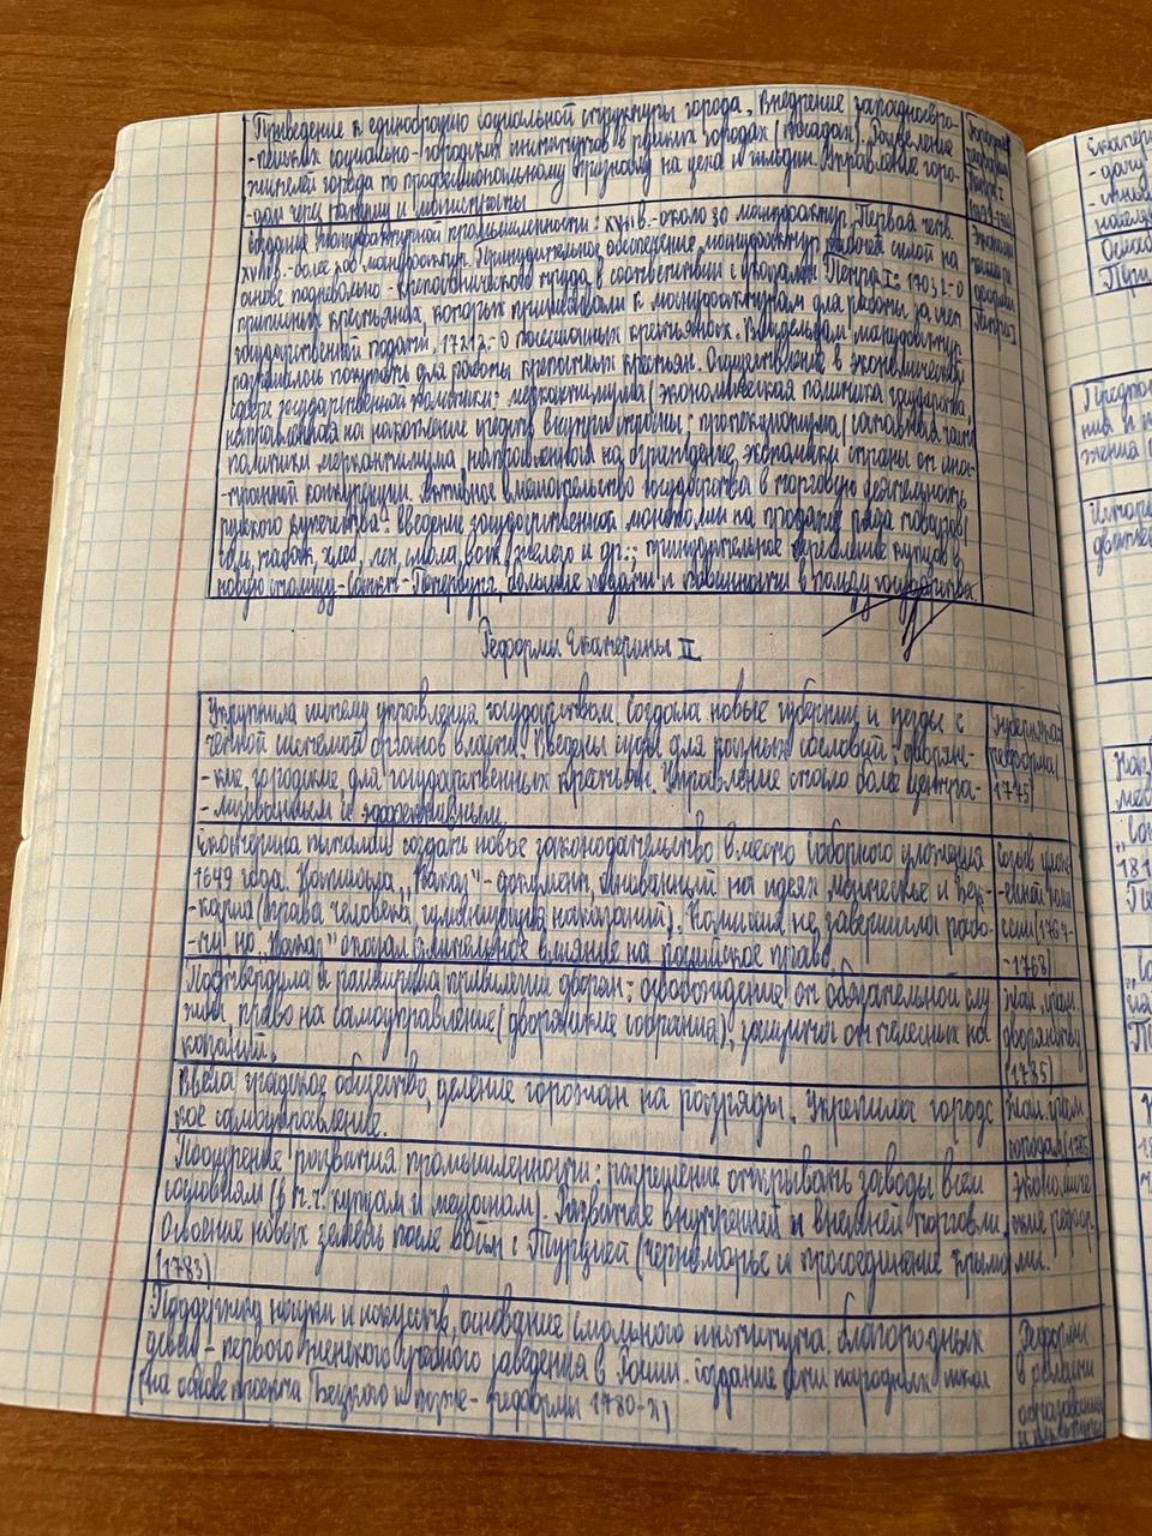 Приведение к единообразию социальной структуры города. Внедрение западноевро-
-пейских социально-городских институтов в русских городах (посадах). Разделение
жителей города по профессиональному признаку на цеха и гильдии. Управление горо-
-дом через ратуши и магистраты
Городская
реформа
Петра I
Создание мануфактурной промышленности: XVII в. - около 30 мануфактур. Первая четв.
XVIII в. - более 200 мануфактур. Принудительное обеспечение мануфактур рабочей силой на
основе подневольно-крепостнического труда в соответствии с указами Петра I: 1703 г. - о
приписных крестьянах, которых приписывали к мануфактурам для работы за счет
государственной подати, 1721 г. - о посессионных крестьянах. Владельцам мануфактур
разрешалось покупать для работы крепостных крестьян. Осуществление в экономической
сфере государственной политики: меркантилизма (экономическая политика государства,
направленная на накопление средств внутри страны; протекционизма (составная часть
политики меркантилизма, направленного на ограждение экономики страны от ино-
-странной конкуренции. Активное вмешательство государства в торговую деятельность
русского купечества: введение государственной монополии на продажу ряда товаров (
соль, табак, хлеб, лен, смола, воск, железо и др.; принудительное переселение купцов в
новую столицу - Санкт-Петербург, большие подати и повинности в пользу государства.
Экономи
ческие
реформы
Петра I
Реформы Екатерины II
Укрупнила систему управления государством. Создала новые губернии и уезды с
чёткой системой органов власти. Введены суды для разных сословий: дворян-
-ские, городские, для государственных крестьян. Управление стало более центра-
-лизованным и эффективным.
Губернская
реформа
(1775)
Екатерина пыталась создать новое законодательство вместо Соборного уложения
1649 года. Написала „Наказ" - документ, основанный на идеях Монтескье и Бек-
-кариа (права человека, гуманизация наказаний). Комиссия не завершила рабо-
-ту, но „Наказ" оказал значительное влияние на российское право.
Созыв улож-
-енной коми
ссии (1767-
-1768)
Подтвердила и расширила привилегии дворян: освобождение от обязательной слу
жбы, право на самоуправление (дворянские собрания), защита от телесных на
казаний.
Жал. грам.
дворянству
(1785)
Ввела градское общество, деление горожан на разряды. Укрепила городс
кое самоуправление.
Жал. грам
городам (1785)
Поощрение развития промышленности: разрешение открывать заводы всем
сословиям (в т.ч. купцам и мещанам). Развитие внутренней и внешней торговли.
Освоение новых земель после войн с Турцией (Черноморье и присоединение Крыма
(1783)
Экономиче
ские рефор
мы.
Поддержка науки и искусств, основание Смольного института благородных
девиц - первого женского учебного заведения в России. Создание сети народных школ
(на основе проекта Бецкого и позже - реформы 1780-х)
Реформы
в религии
образовании
и культуре